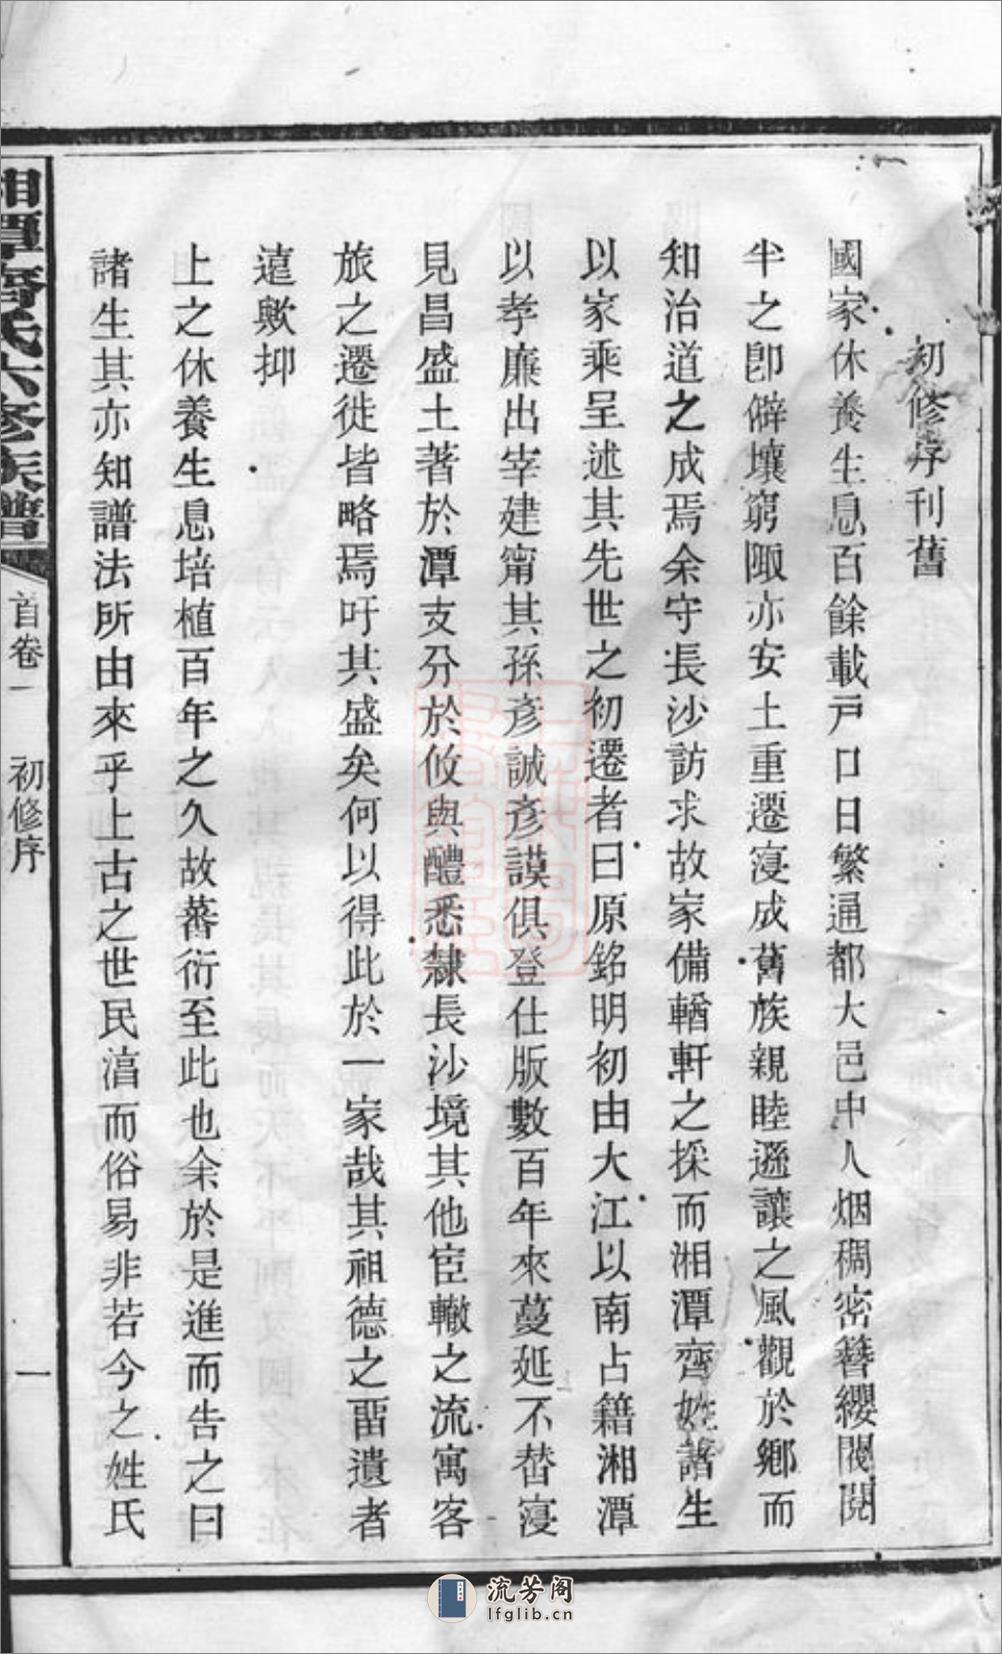 初修序刊舊
國家休養生息百餘載戸口日繁通都大邑中人烟稠密簪纓閥閱
半之卽僻壤窮陬亦安土重遷寖成舊族親睦遜讓之風觀於鄕而
知治道之成焉余守長沙訪求故家備輶軒之採而湘潭齊姓諸生
以家乘呈述其先世之初遷者曰原銘明初由大江以南占籍湘潭
以孝廉出宰建甯其孫彥誠彥謨俱登仕版數百年來蔓延不替寖
見昌盛土著於潭支分於攸與醴悉隸長沙境其他宦轍之流寓客
旅之遷徙皆略焉吁其盛矣何以得此於一家哉其祖德之畱遺者
遠歟抑
上之休養生息培植百年之久故蕃衍至此也余於是進而告之曰
諸生其亦知譜法所由來乎上古之世民湻而俗易非若今之姓氏
湘潭齊氏六修族譜
首卷一
初修序
一
流芳阁
lfglib.cn